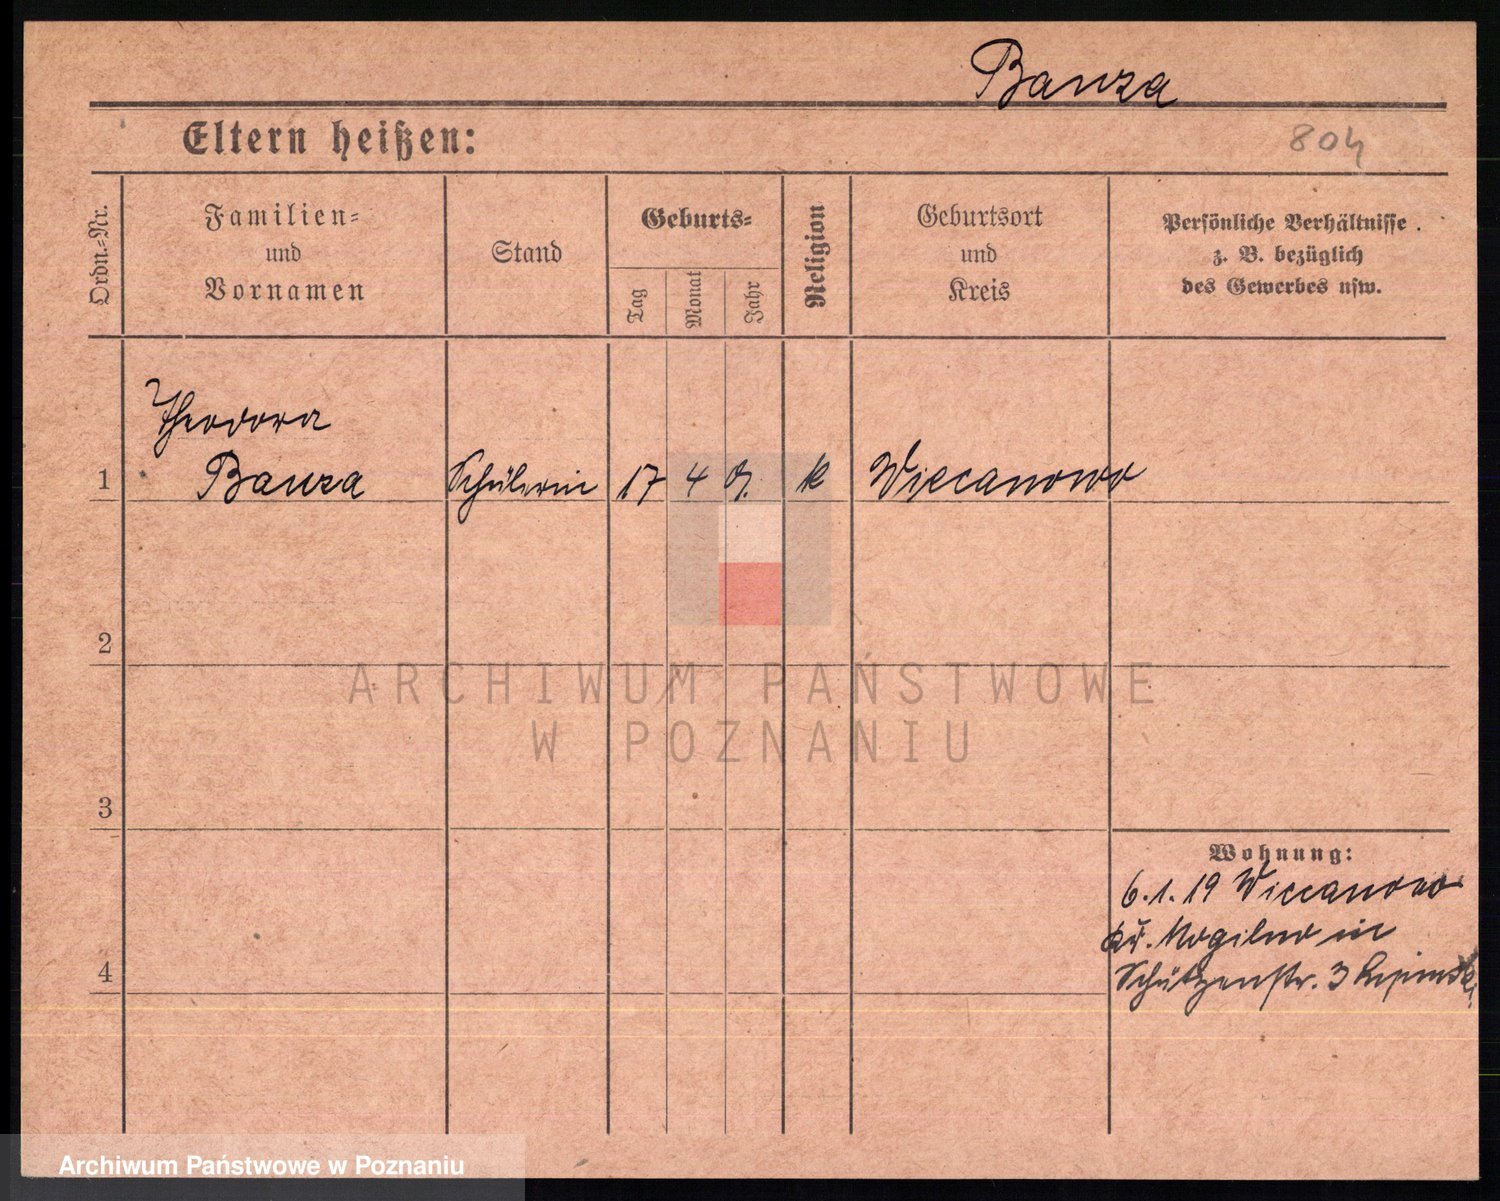 Banza
Eltern heißen:
804
Ordn.-Nr.
Familien-
und
Vornamen
Stand
Geburts-
Tag
Monat
Jahr
Religion
Geburtsort
und
Kreis
Persönliche Verhältnisse
z. B. bezüglich
des Gewerbes usw.
Theodora
1 Banza Schülerin 17 4 k Wiecanowo
2
ARCHIWUM PAŃSTWOWE
W POZNANIU
3
Wohnung:
6.1.19 Wiecanowo
Kr. Mogilno in
4
Schützenstr. 3
Archiwum Państwowe w Poznaniu